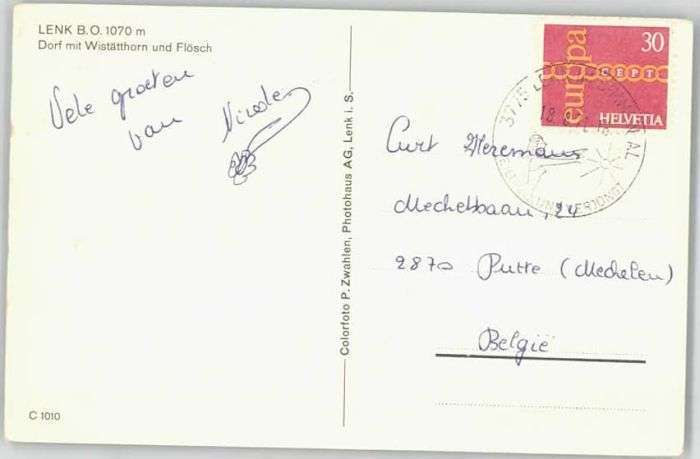 LENK B.O. 1070 m
Dorf mit Wistätthorn und Flösch
Vele groeten
van
C 1010
Colorfoto P. Zwahlen, Photohaus AG, Lenk i. S.
europa
CEPT
30
HELVETIA
3775
Curt Heremans
Mechelbaan, 24
2870 Putte (Mechelen)
België